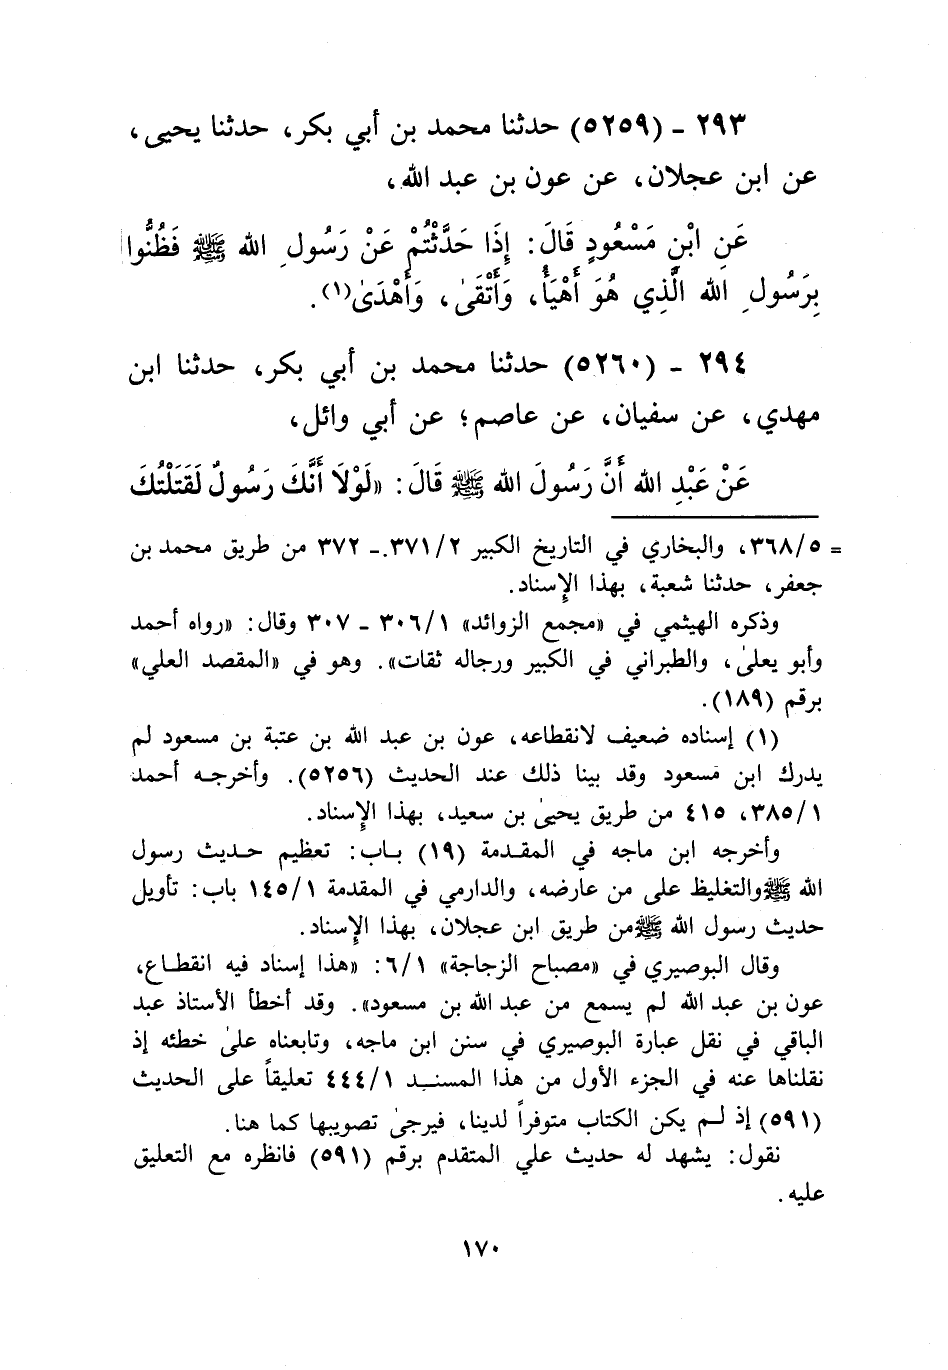 ٢٩٣ - (٥٢٥٩) حدثنا محمد بن أبي بكر، حدثنا يحيى،
عن ابن عجلان، عن عون بن عبد الله،
عَنِ ابْنِ مَسْعُودٍ قَالَ: إِذَا حَدَّثْتُمْ عَنْ رَسُولِ الله ﷺ فَظُنُّوا
بِرَسُولِ الله الَّذِي هُوَ أَهْيَأُ، وَأَتْقَىٰ، وَأَهْدَىٰ(١).
٢٩٤ - (٥٢٦٠) حدثنا محمد بن أبي بكر، حدثنا ابن
مهدي، عن سفيان، عن عاصم؛ عن أبي وائل،
عَنْ عَبْدِ الله أَنَّ رَسُولَ الله ﷺ قَالَ: «لَوْلَا أَنَّكَ رَسُولٌ لَقَتَلْتُكَ
= ٣٦٨/٥، والبخاري في التاريخ الكبير ٣٧١/٢ - ٣٧٢ من طريق محمد بن
جعفر، حدثنا شعبة، بهذا الإسناد.
وذكره الهيثمي في «مجمع الزوائد» ٣٠٦/١ - ٣٠٧ وقال: «رواه أحمد
وأبو يعلىٰ، والطبراني في الكبير ورجاله ثقات». وهو في «المقصد العلي»
برقم (١٨٩).
(١) إسناده ضعيف لانقطاعه، عون بن عبد الله بن عتبة بن مسعود لم
يدرك ابن مسعود وقد بينا ذلك عند الحديث (٥٢٥٦). وأخرجه أحمد
٣٨٥/١، ٤١٥ من طريق يحيىٰ بن سعيد، بهذا الإسناد.
وأخرجه ابن ماجه في المقدمة (١٩) باب: تعظيم حديث رسول
الله ﷺ والتغليظ على من عارضه، والدارمي في المقدمة ١٤٥/١ باب: تأويل
حديث رسول الله ﷺ من طريق ابن عجلان، بهذا الإسناد.
وقال البوصيري في «مصباح الزجاجة» ٦/١: «هذا إسناد فيه انقطاع،
عون بن عبد الله لم يسمع من عبد الله بن مسعود». وقد أخطأ الأستاذ عبد
الباقي في نقل عبارة البوصيري في سنن ابن ماجه، وتابعناه علىٰ خطئه إذ
نقلناها عنه في الجزء الأول من هذا المسند ٤٤٤/١ تعليقاً على الحديث
(٥٩١) إذ لم يكن الكتاب متوفراً لدينا، فيرجىٰ تصويبها كما هنا.
نقول: يشهد له حديث علي المتقدم برقم (٥٩١) فانظره مع التعليق
عليه.
١٧٠